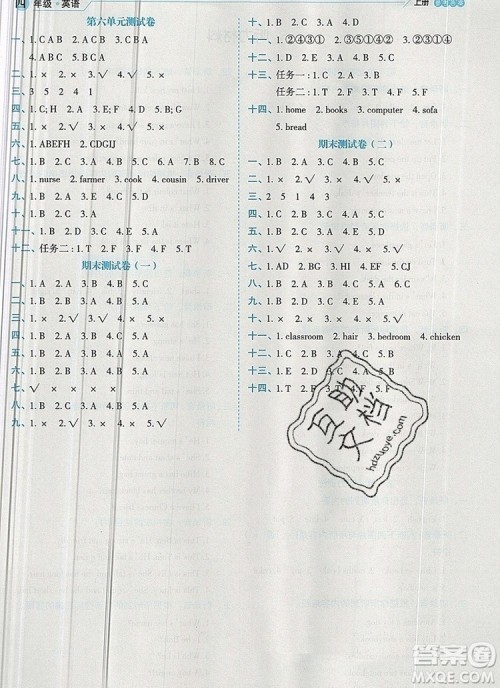 四 年级·英语
上册
第六单元测试卷
一、1. C A B 2. A C B 3. C A B
4. C B A 5. B C A
二、1. × 2. √ 3. × 4. × 5. √
三、3 5 2 4 1
四、1. C; H 2. A 3. F; J 4. D; I 5. B; G
五、1. × 2. √ 3. √ 4. × 5. √
六、1. ABEFH 2. CDGIJ
七、1. B 2. C 3. A 4. B 5. A
八、1. nurse 2. farmer 3. cook 4. cousin 5. driver
九、1. D 2. B 3. E 4. A 5. C
十、1. B 2. B 3. A 4. B 5. A
十一、1. B 2. C 3. A 4. E 5. D
十二、任务二：1. T 2. F 3. F 4. T 5. F
期末测试卷（一）
一、1. B 2. A 3. A 4. B 5. A
二、1. A 2. C 3. B 4. C 5. B
三、1. × 2. × 3. √ 4. × 5. √
四、1. B 2. B 3. A 4. B 5. A
五、1. A 2. B 3. A 4. B 5. B
六、1. B 2. A 3. B 4. A 5. B
七、√ × × × ×
八、1. B 2. C 3. A 4. C 5. A
九、1. × 2. × 3. √ 4. √ 5. ×
十、1. C 2. B 3. A 4. D
十一、1. ②④③① 2. ③⑤①④②
十二、1. × 2. √ 3. √ 4. × 5. √
十三、任务一：1. F 2. T 3. F
任务二：1. B 2. A 3. A
十四、1. home 2. books 3. computer 4. sofa
5. bread
期末测试卷（二）
一、1. B 2. A 3. B 4. B 5. A
二、1. × 2. × 3. √ 4. √ 5. ×
三、2 5 1 4 3
四、1. C 2. A 3. B 4. A 5. C
五、1. B 2. A 3. B 4. A 5. B
六、1. √ 2. × 3. × 4. √ 5. √
七、1. ADJ 2. BG 3. CF 4. EI 5. HK
八、1. C 2. B 3. A 4. B 5. C
九、1. B 2. A 3. C 4. A 5. C
十、1. √ 2. √ 3. × 4. × 5. √
十一、1. classroom 2. hair 3. bedroom 4. chicken
十二、1. D 2. C 3. A 4. E 5. B
十三、1. B 2. A 3. C 4. C 5. B
十四、1. T 2. F 3. T 4. F 5. F
互助文档
hdzuoye.com
答案圈
MXQE.COM